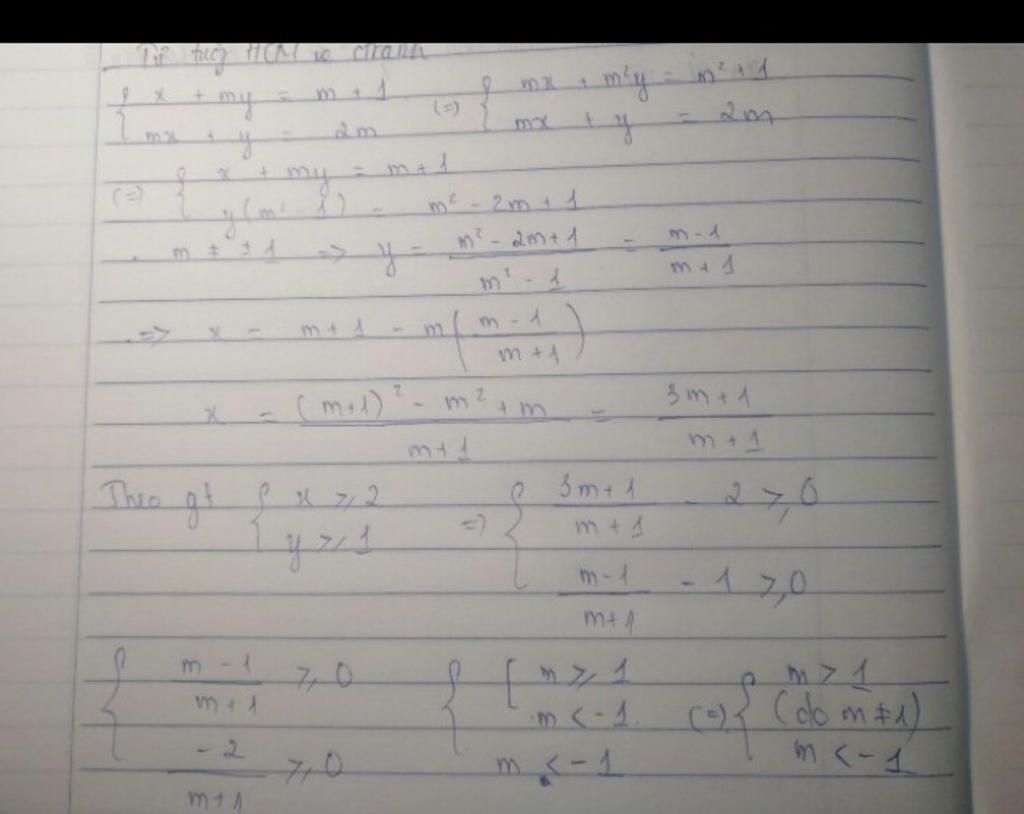 Tư tưởng HCM
{ x + my = m + 1 (=) { mx + m²y = m² + 1
{ mx + y = 2m { mx + y = 2m
(=) { x + my = m + 1
{ y(m² - 1) = m² - 2m + 1
. m ≠ ± 1 => y = (m² - 2m + 1)/(m² - 1) = (m - 1)/(m + 1)
. => x = m + 1 - m((m - 1)/(m + 1))
x = ((m+1)² - m² + m)/(m + 1) = (3m + 1)/(m + 1)
Theo gt { x ≥ 2 => { (3m + 1)/(m + 1) - 2 ≥ 0
{ y ≥ 1 { (m - 1)/(m + 1) - 1 ≥ 0
{ (m - 1)/(m + 1) ≥ 0 { [ m ≥ 1 (=) { m > 1
[ m < -1. (do m ≠ 1)
{ -2/(m + 1) ≥ 0 m < -1 m < -1